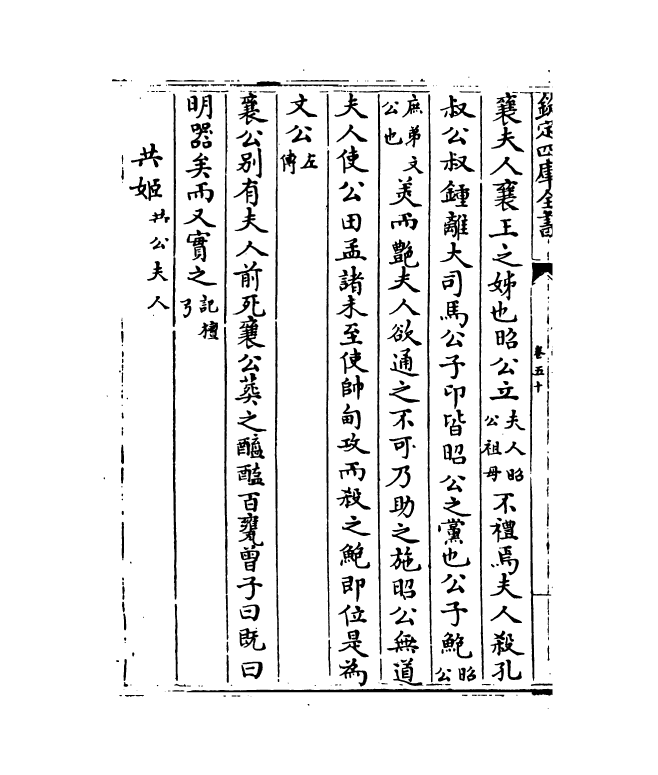 欽定四庫全書
卷五十
襄夫人襄王之姊也昭公立夫人昭公祖母不禮焉夫人殺孔
叔公叔鍾離大司馬公子卬皆昭公之黨也公子鮑昭公
庶弟文公也美而艷夫人欲通之不可乃助之施昭公無道
夫人使公田孟諸未至使帥甸攻而殺之鮑即位是為
文公左傳
襄公別有夫人前死襄公葬之醯醢百甕曾子曰既曰
明器矣而又實之記檀弓
共姬共公夫人